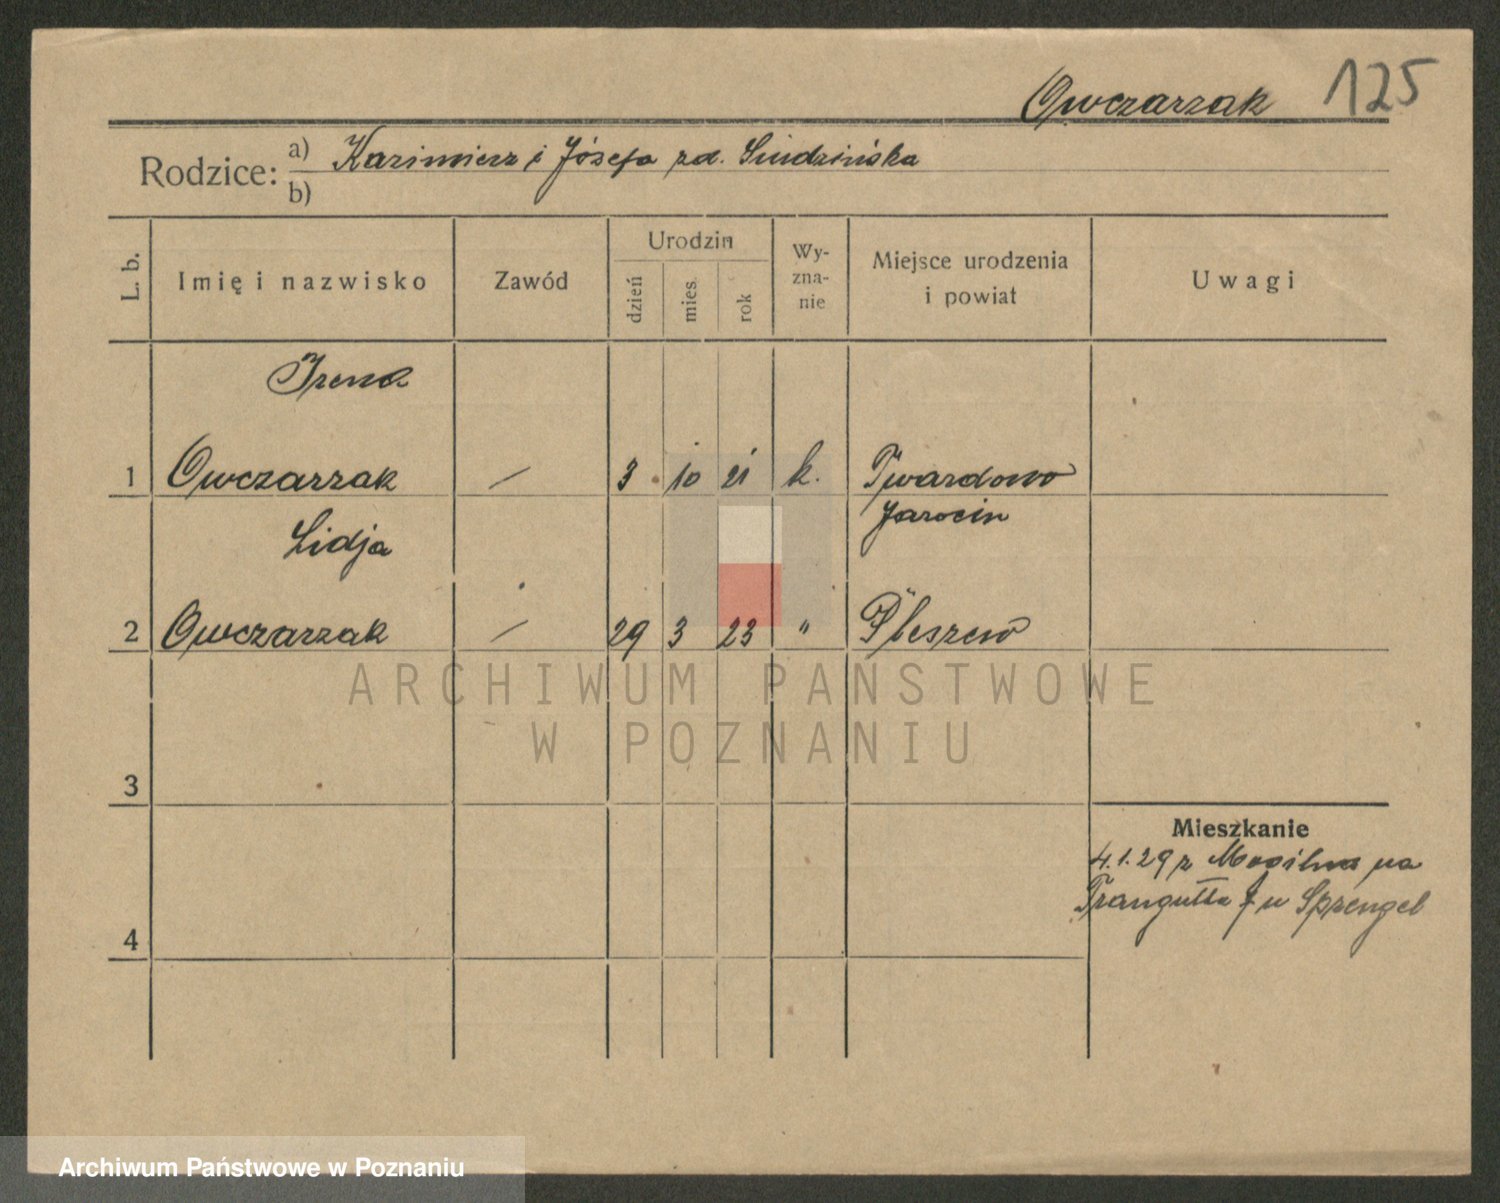 Owczarzak 125
Rodzice: a) Kazimierz i Józefa zd.
b)
L. b.
Imię i nazwisko
Zawód
Urodzin
dzień
mies.
rok
Wy-
zna-
nie
Miejsce urodzenia
i powiat
Uwagi
Irena
1 Owczarzak — 3 10 21 k. Twardowo
Jarocin
Lidja
2 Owczarzak — 29 3 23 " Pleszew
3
4
Mieszkanie
4.1.29 z Mogilna na
7 u Sprengel
ARCHIWUM PAŃSTWOWE
W POZNANIU
Archiwum Państwowe w Poznaniu